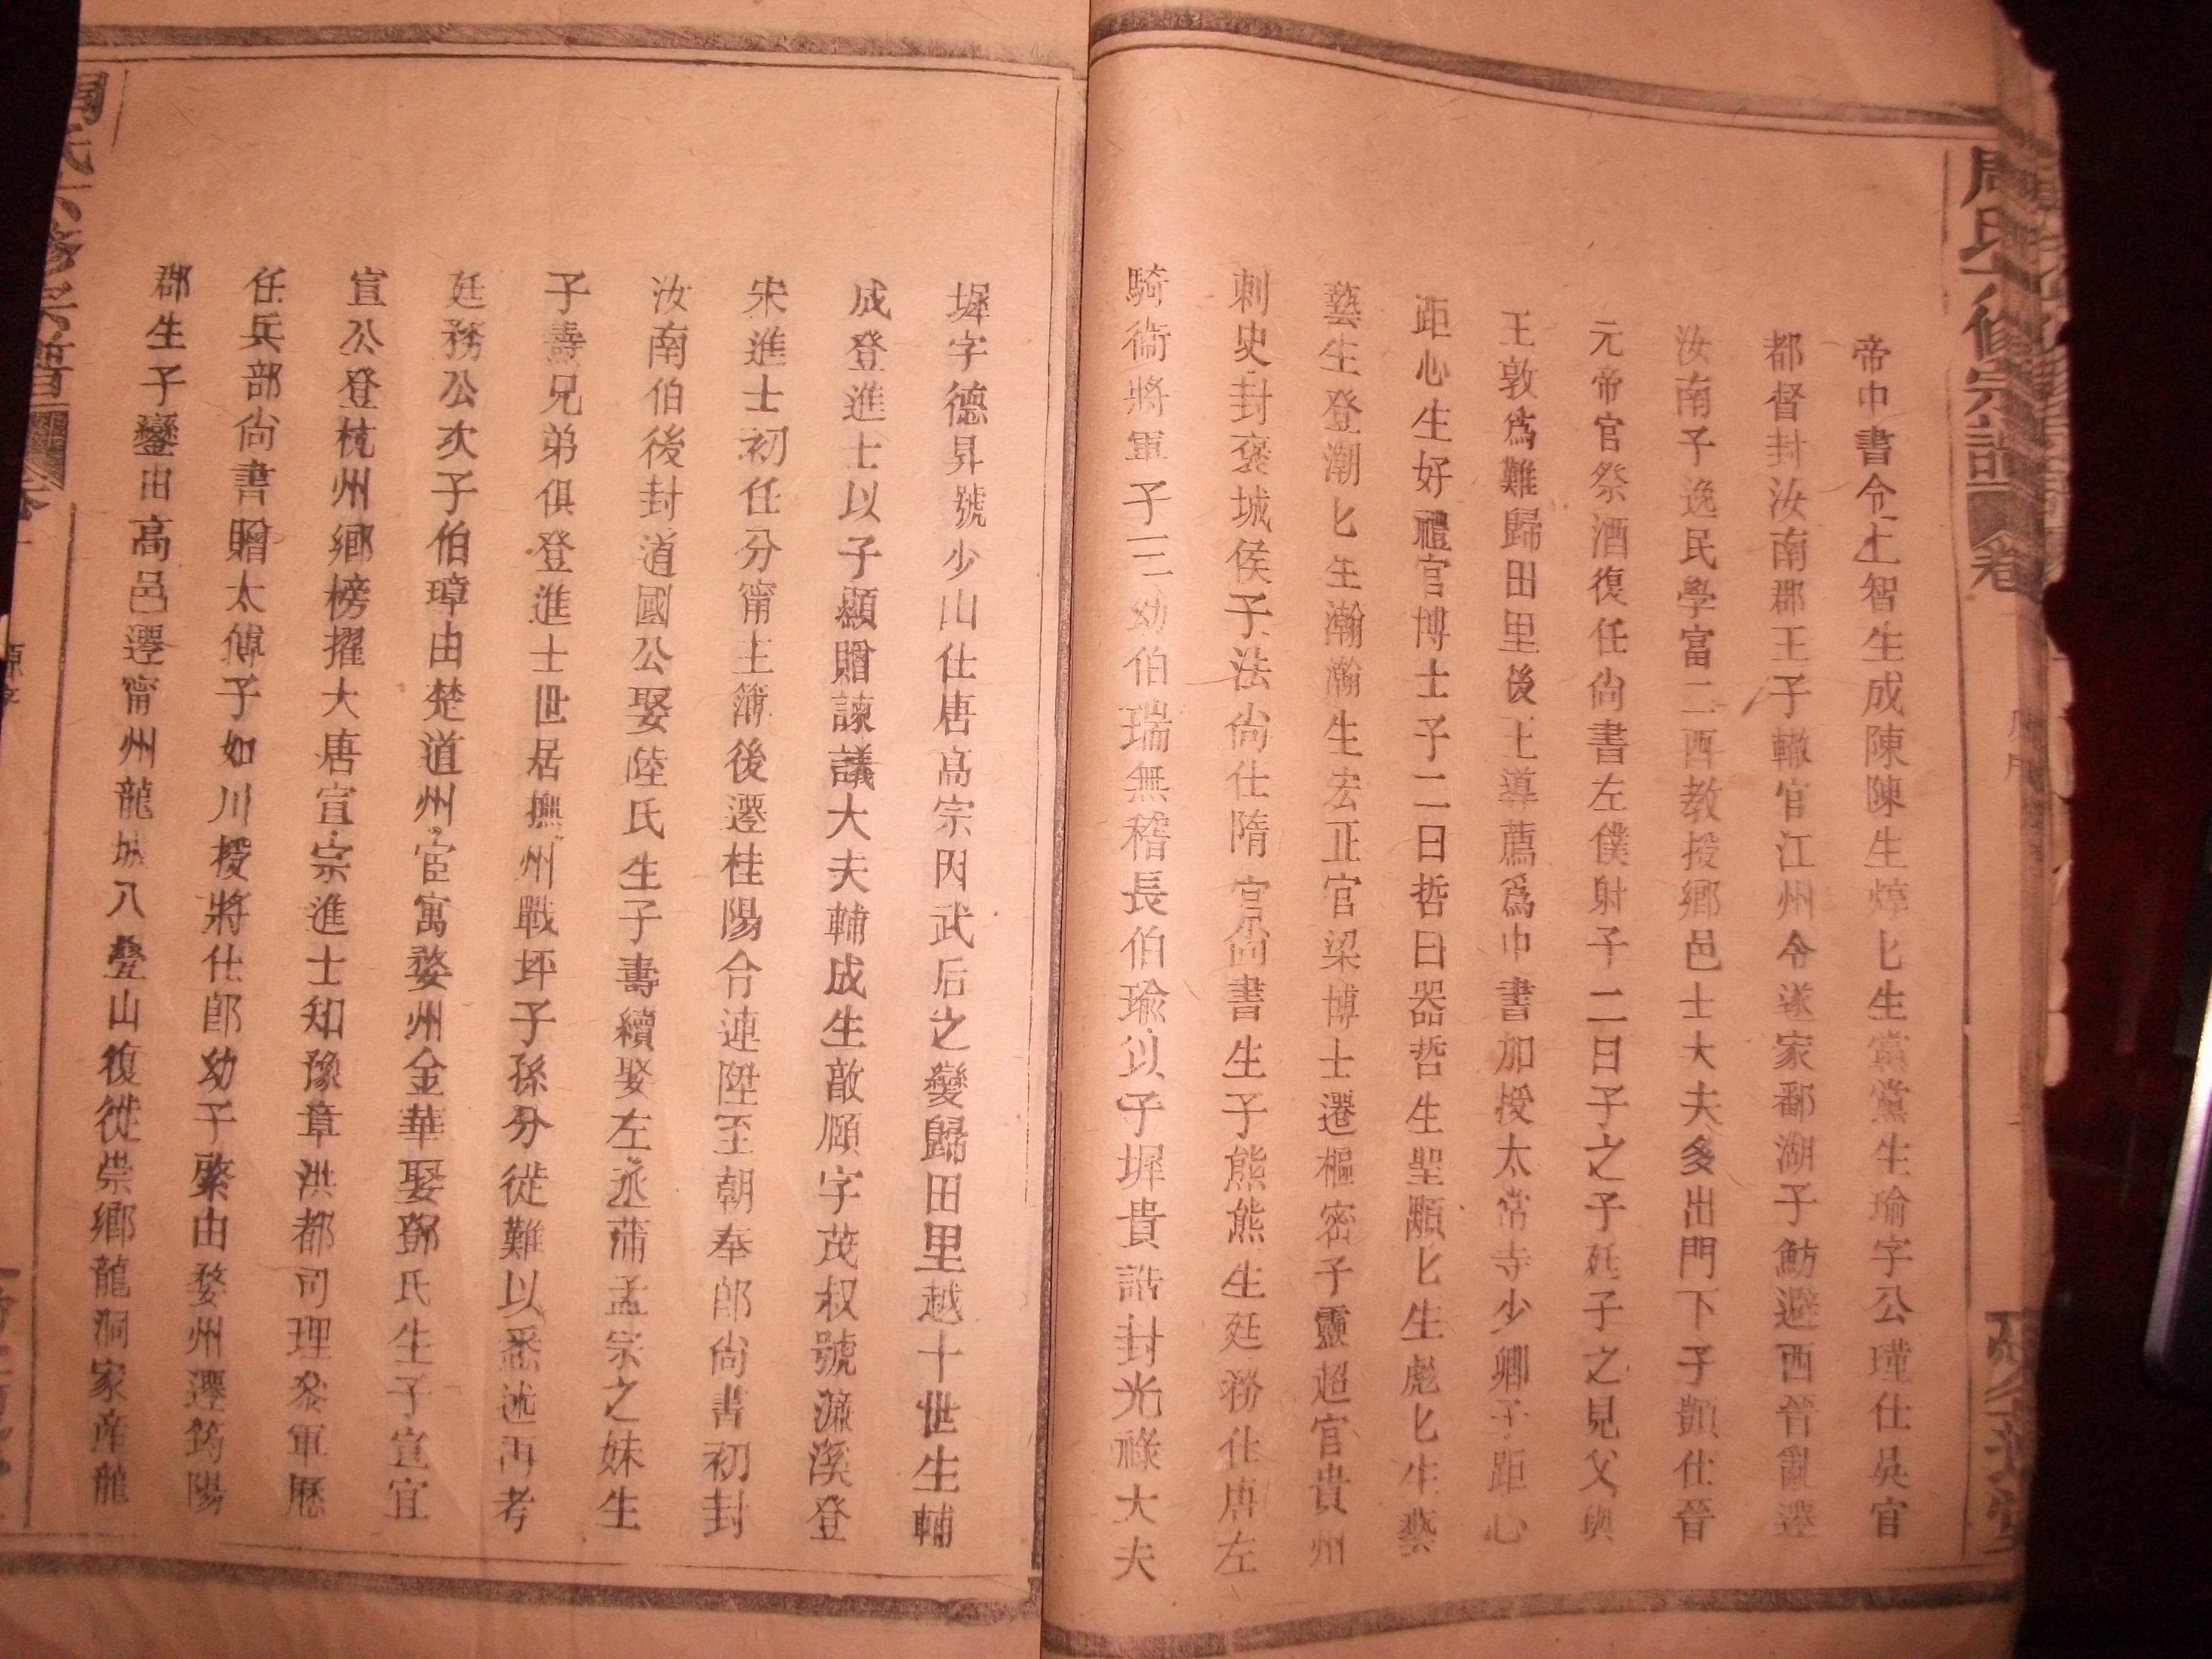 周氏六修宗譜 卷
帝中書令上智生成陳陳生焞匕生黨黨生瑜字公瑾仕吳官
都督封汝南郡王子轍官江州令遂家鄱湖子魴避西晉亂遷
汝南子逸民學富二酉教授鄉邑士大夫多出門下子顗仕晉
元帝官祭酒復任尙書左僕射子二曰子之子廷子之見父與
王敦爲難歸田里後王導薦爲中書加授太常寺少卿子距心
距心生好禮官博士子二曰哲曰器哲生聖顯匕生彪匕生藝
藝生登潮匕生瀚瀚生宏正官梁博士遷樞密子靈超官貴州
刺史封褒城侯子法尙仕隋官尙書生子熊熊生廷務仕唐左
騎衞將軍子三幼伯瑞無稽長伯瑜以子墀貴誥封光祿大夫
墀字德昇號少山仕唐高宗因武后之變歸田里越十世生輔
成登進士以子顯贈諫議大夫輔成生敵頤字茂叔號濂溪登
宋進士初任分甯主簿後遷桂陽合連陞至朝奉郎尙書初封
汝南伯後封道國公娶陸氏生子壽續娶左丞蒲孟宗之妹生
子燾兄弟俱登進士世居撫州戰坪子孫分徙難以悉述再考
廷務公次子伯璋由楚道州宦寓婺州金華娶鄧氏生子宣宜
宣公登杭州鄉榜擢大唐宣宗進士知豫章洪都司理叅軍歷
任兵部尙書贈太傅子如川授將仕郎幼子縏由婺州遷筠陽
郡生子鑾由高邑遷甯州龍城八疊山復徙崇鄉龍洞家產龍
周氏六修宗譜 卷一